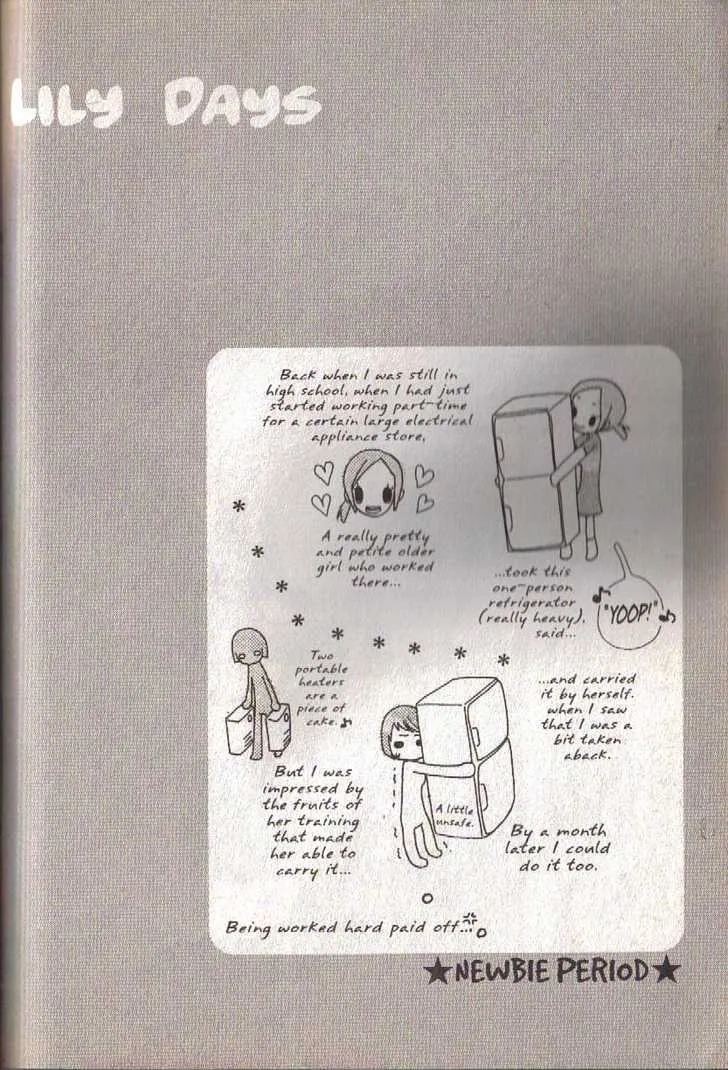 LILY DAYS
Back when I was still in
high school, when I had just
started working part-time
for a certain large electrical
appliance store,
A really pretty
and petite older
girl who worked
there...
...took this
one-person
refrigerator
(really heavy),
said...
"YOOP!"
...and carried
it by herself.
when I saw
that I was a
bit taken
aback.
Two
portable
heaters
are a
piece of
cake.♪
But I was
impressed by
the fruits of
her training
that made
her able to
carry it...
A little
unsafe.
By a month
later I could
do it too.
Being worked hard paid off...
★NEWBIE PERIOD★